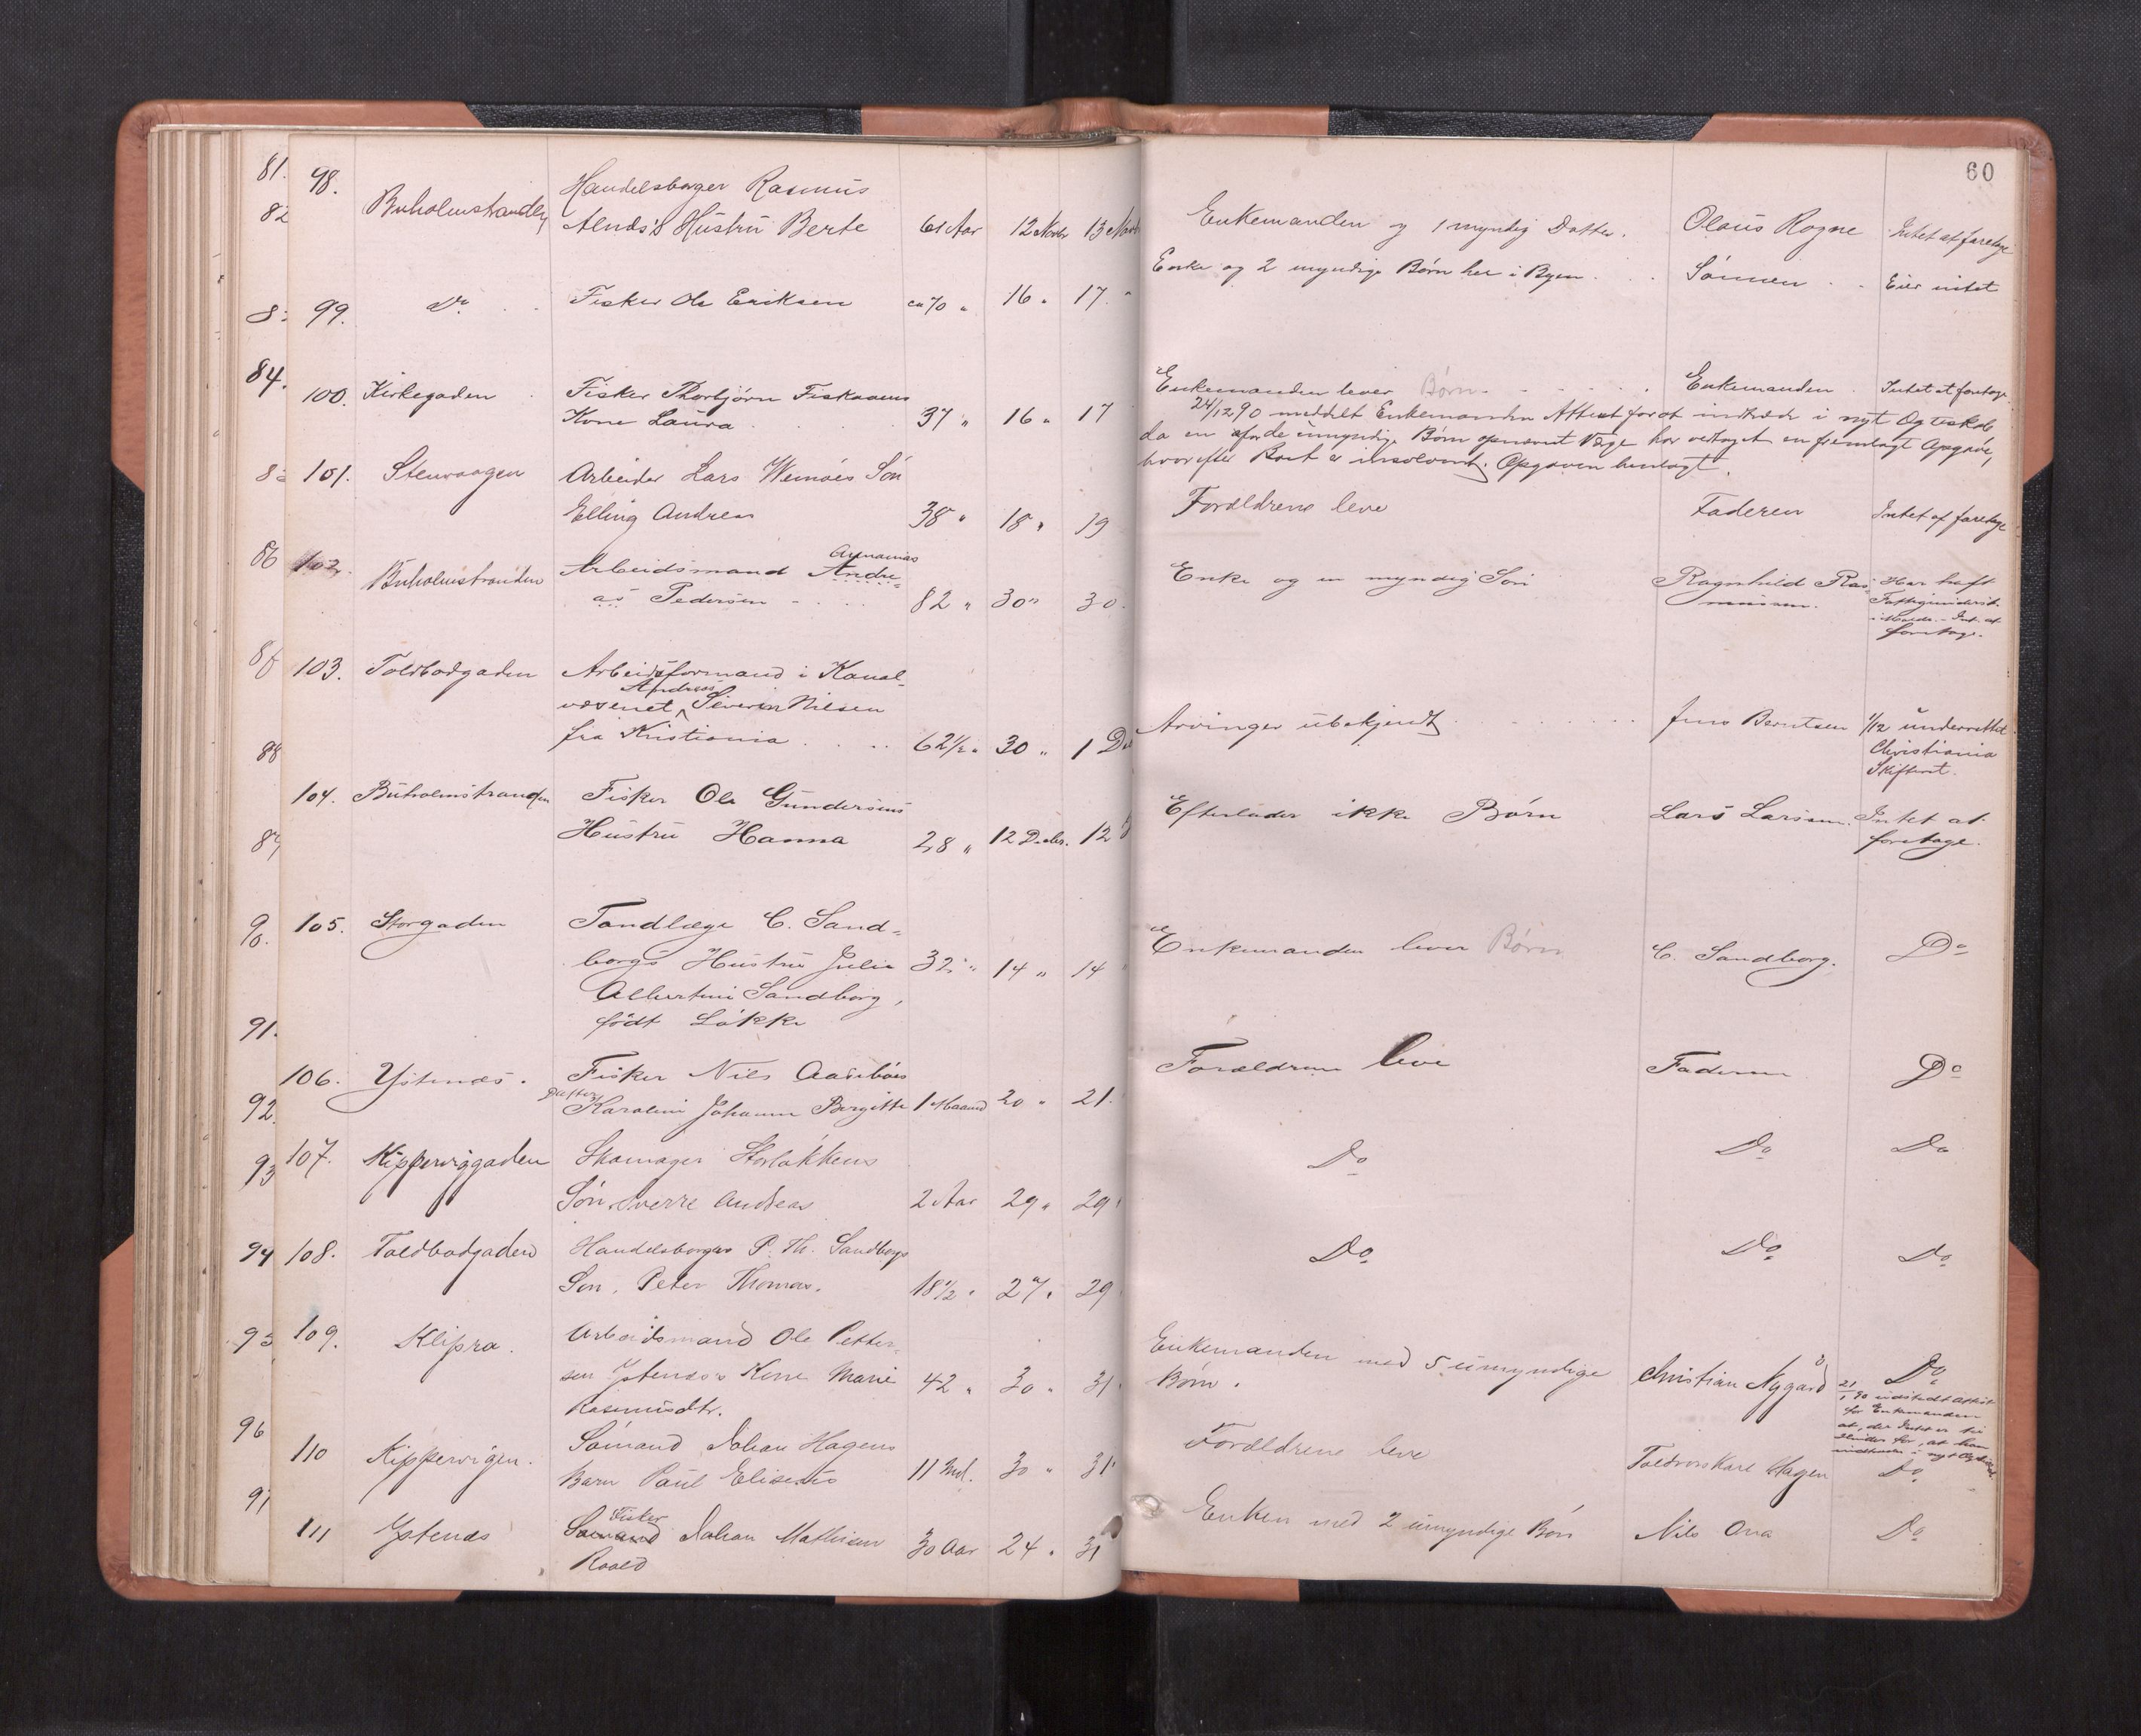 60
81.
82
84.
86
88
90.
91.
92.
93
94
95
96
97
98.
Buholmstranden
Handelsborger Rasmus
Alnæs's Hustru Berte 61 Aar 12 Novbr 13 Novb
Enkemanden og 1 myndig Datter. Olaus Rogne Intet at foretage
99. Do. Fisker Ole Eriksen ca 70 " 16 " 17. "
Enke og 2 myndige Børn her i Byen. Sønnen Eier intet
100. Kirkegaden Fisker Thorbjørn
Kone Laura 37 " 16 " 17
Enkemanden lever Børn. Enkemanden Intet at foretage
24/12 90 meddelt Enkemanden Attest for at indtræde i nyt Ægteskab
da en for de umyndige Børn opnævnt Værge har vedtaget en fremlagt Opgave,
hvorefter Boet er insolvent. Opgaven henlagt.
101. Stenvaagen Arbeider Lars Søn
Elling Andreas 38 " 18 " 19
Forældrene leve Faderen Intet at foretage
102. Buholmstranden Arbeidsmand Andre-
Annanias
as Pedersen 82 " 30 " 30.
Enke og en myndig Søn Ragnhild Ras- Har havt
mussen. Fattigunderst.
i Molde. - Int. at
foretage.
103. Toldbodgaden Arbeidsformand i Kanal-
Andreas
væsenet Siverin Nilsen
fra Kristiania 62 1/2 " 30 " 1 De
Arvinger ubekjendt Jens Berntsen 1/12 underrettet
Christiania
Skifteret.
104. Buholmstranden Fisker Ole Gundersens
Hustru Hanna 28 " 12 Decbr. 12 D
Efterlader ikke Børn Lars Larsen. Intet at
foretage.
105. Storgaden Tandlæge C. Sand-
borgs Hustru Julie 32 " 14 " 14 "
Albertine Sandborg,
født Løkke
Enkemanden lever Børn C. Sandborg. Do
106. Ystenæs. Fisker Nils Aasebøes
Datter
Karoline Johanne Birgitte 1 Maaned 20 " 21.
Forældrene leve Faderen Do
107. Kipperviggaden Skomager Storløkkens
Søn Sverre Andreas 2 Aar 29 " 29 "
Do Do Do
108. Toldbodgaden Handelsborger P. Th. Sandborgs
Søn, Peter Thomas. 18 1/2 " 27 " 29
Do. Do. Do.
109. Klipra. Arbeidsmand Ole Petter-
sen Ystenæs's Kone Marie 42 " 30 " 31
Rasmusdtr.
Enkemanden med 5 umyndige Christian Nygård Do.
Børn.
21/1 90 udstedt Attest
for Enkemanden
at, der Intet er til
Hinder for, at han
indtræder i nyt Ægteskab
110 Kippervigen. Sømand Johan Hagens
Barn Paul Eliseus 11 Md. 30 " 31
Forældrene leve Toldvskarl Hagen Do.
111 Ystenæs Sømand Johan Mathisen 30 Aar 24 " 31
Fisker
Roald
Enken med 2 umyndige Børn Nils Ona Do